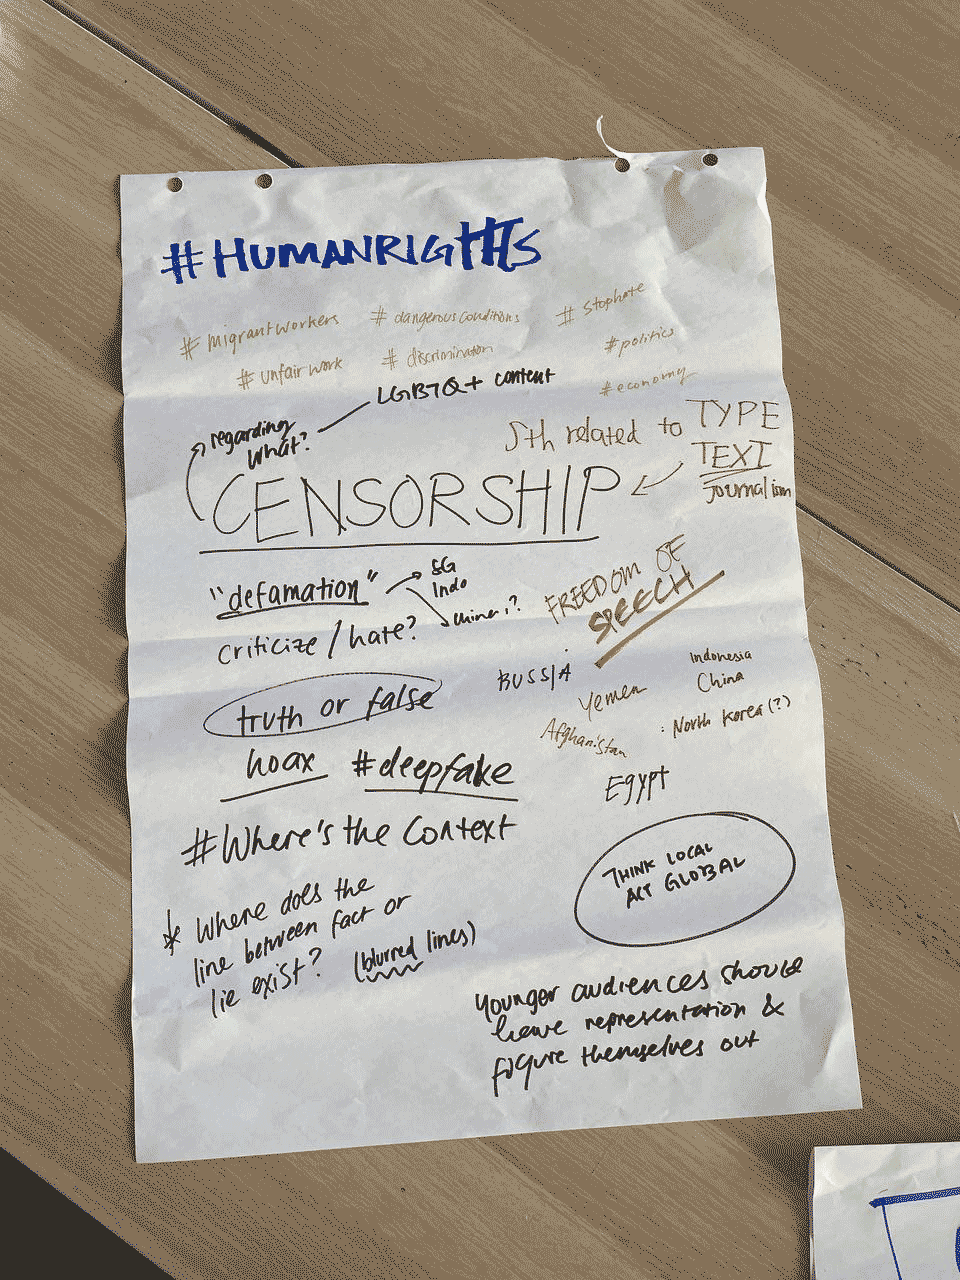 #HUMANRIGHTS
#migrantworkers
#dangerousconditions
#stophate
#unfairwork
#discrimination
#politics
#economy
LGBTQ+ content
regarding
what?
Sth related to TYPE
TEXT
journalism
CENSORSHIP
"defamation"
SG
Indo
China?
criticize/hate?
FREEDOM OF
SPEECH
truth or false
RUSSIA
Yemen
Indonesia
China
Afghanistan
North Korea(?)
hoax #deepfake
Egypt
#Where's the Context
THINK LOCAL
ACT GLOBAL
* Where does the
line between fact or
lie exist? (blurred lines)
younger audiences should
have representation &
figure themselves out